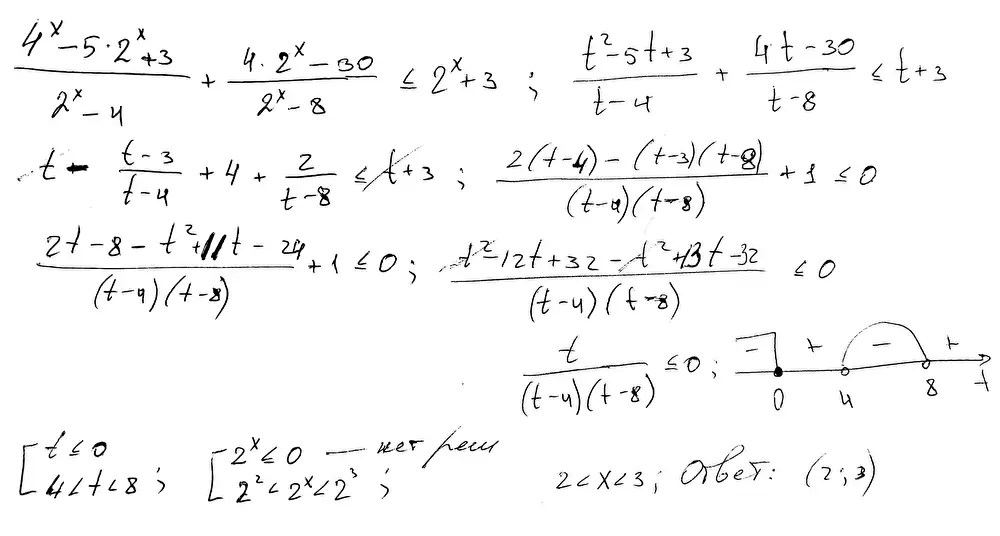 (4^x − 5·2^x + 3)/(2^x − 4) + (4·2^x − 30)/(2^x − 8) ≤ 2^x + 3 ; (t² − 5t + 3)/(t − 4) + (4t − 30)/(t − 8) ≤ t + 3
t − (t − 3)/(t − 4) + 4 + 2/(t − 8) ≤ t + 3 ; (2(t − 4) − (t − 3)(t − 8))/((t − 4)(t − 8)) + 1 ≤ 0
(2t − 8 − t² + 11t − 24)/((t − 4)(t − 8)) + 1 ≤ 0 ; (t² − 12t + 32 − t² + 13t − 32)/((t − 4)(t − 8)) ≤ 0
t/((t − 4)(t − 8)) ≤ 0 ; − + − +
0 4 8 t
[ t ≤ 0 [ 2^x ≤ 0 — нет реш
4 < t < 8 ; 2² < 2^x < 2³ ; 2 < x < 3 ; Ответ: (2; 3)